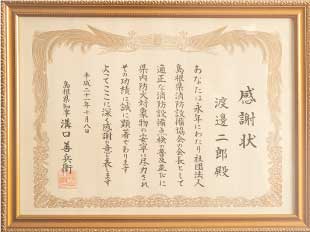 感謝状
渡邊二郎殿
あなたは永年にわたり社団法人
島根県消防設備協会の会長として
適正な消防設備点検の普及並びに
県内防火対象物の安寧に尽力され
その功績は誠に顕著であります
よってここに深く感謝の意を表します
平成二十一年十月八日
島根県知事 溝口善兵衛